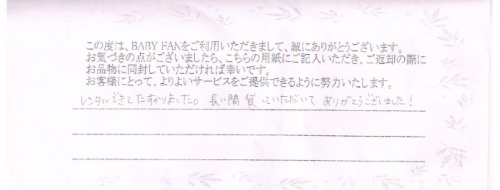 この度は、BABY FANをご利用いただきまして、誠にありがとうございます。
お気づきの点がございましたら、こちらの用紙にご記入いただき、ご返却の際に
お品物に同封していただければ幸いです。
お客様にとって、よりよいサービスをご提供できるように努力いたします。
レンタルできてたすかりました。長い間貸していただいてありがとうございました!